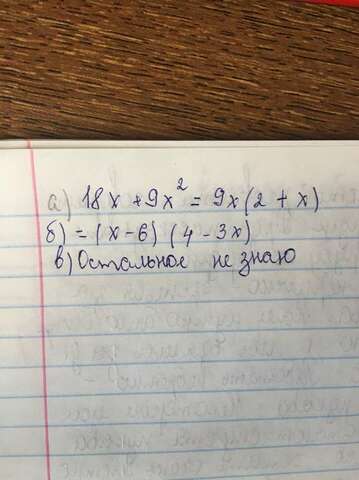 а) 18x + 9x² = 9x(2 + x)
б) = (x - 6) (4 - 3x)
в) Остальное не знаю